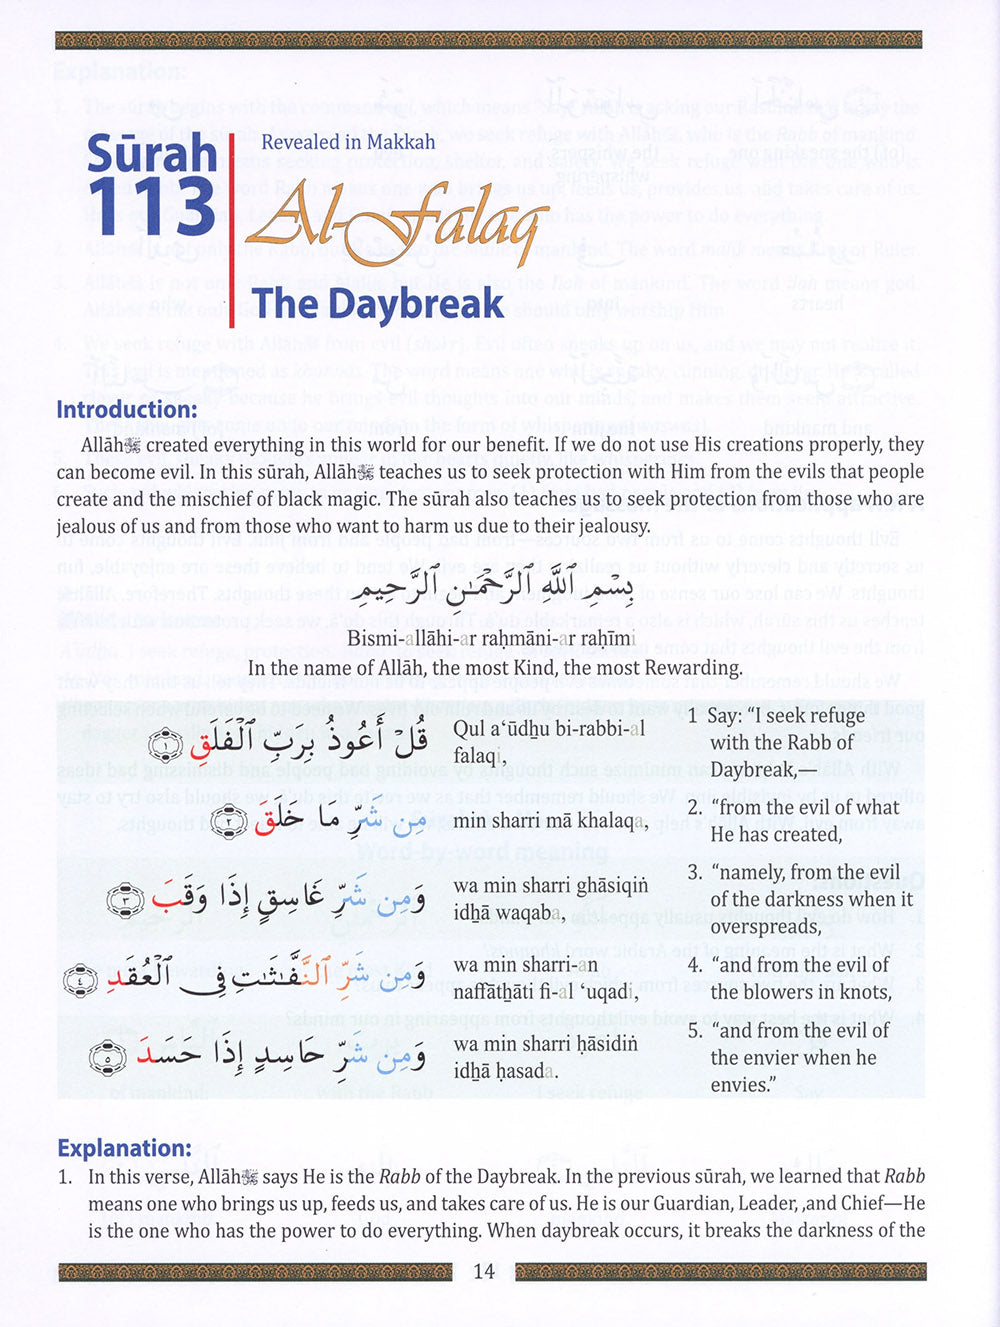 Sūrah
113
Revealed in Makkah
Al-Falaq
The Daybreak
Introduction:
Allāhﷻ created everything in this world for our benefit. If we do not use His creations properly, they
can become evil. In this sūrah, Allāhﷻ teaches us to seek protection with Him from the evils that people
create and the mischief of black magic. The sūrah also teaches us to seek protection from those who are
jealous of us and from those who want to harm us due to their jealousy.
بِسْمِ ٱللَّهِ ٱلرَّحْمَـٰنِ ٱلرَّحِيمِ
Bismi-allāhi-ar raḥmāni-ar raḥīmi
In the name of Allāh, the most Kind, the most Rewarding.
قُلْ أَعُوذُ بِرَبِّ ٱلْفَلَقِ ١
Qul a‘ūdhu bi-rabbi-al
falaqi,
1 Say: “I seek refuge
with the Rabb of
Daybreak,—
مِن شَرِّ مَا خَلَقَ ٢
min sharri mā khalaqa,
2. “from the evil of what
He has created,
وَمِن شَرِّ غَاسِقٍ إِذَا وَقَبَ ٣
wa min sharri ghāsiqiṅ
idhā waqaba,
3. “namely, from the evil
of the darkness when it
overspreads,
وَمِن شَرِّ ٱلنَّفَّـٰثَـٰتِ فِى ٱلْعُقَدِ ٤
wa min sharri-an
naffāthāti fi-al ‘uqadi,
4. “and from the evil of
the blowers in knots,
وَمِن شَرِّ حَاسِدٍ إِذَا حَسَدَ ٥
wa min sharri ḥāsidiṅ
idhā ḥasada.
5. “and from the evil of
the envier when he
envies.”
Explanation:
1. In this verse, Allāhﷻ says He is the Rabb of the Daybreak. In the previous sūrah, we learned that Rabb
means one who brings us up, feeds us, and takes care of us. He is our Guardian, Leader, ,and Chief—He
is the one who has the power to do everything. When daybreak occurs, it breaks the darkness of the
14